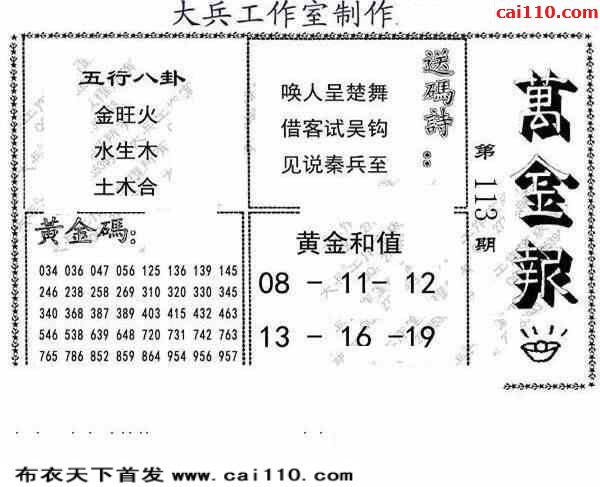 大兵工作室制作
cai110.com
五行八卦
金旺火
水生木
土木合
送碼詩：
唤人呈楚舞
借客试吴钩
见说秦兵至
萬金報
第113期
黃金碼：
034 036 047 056 125 136 139 145
246 238 258 269 310 320 330 345
340 368 387 389 403 415 432 463
546 538 639 648 720 731 742 763
765 786 852 859 864 954 956 957
黄金和值
08 - 11- 12
13 - 16 -19
布衣天下首发 www.cai110.com